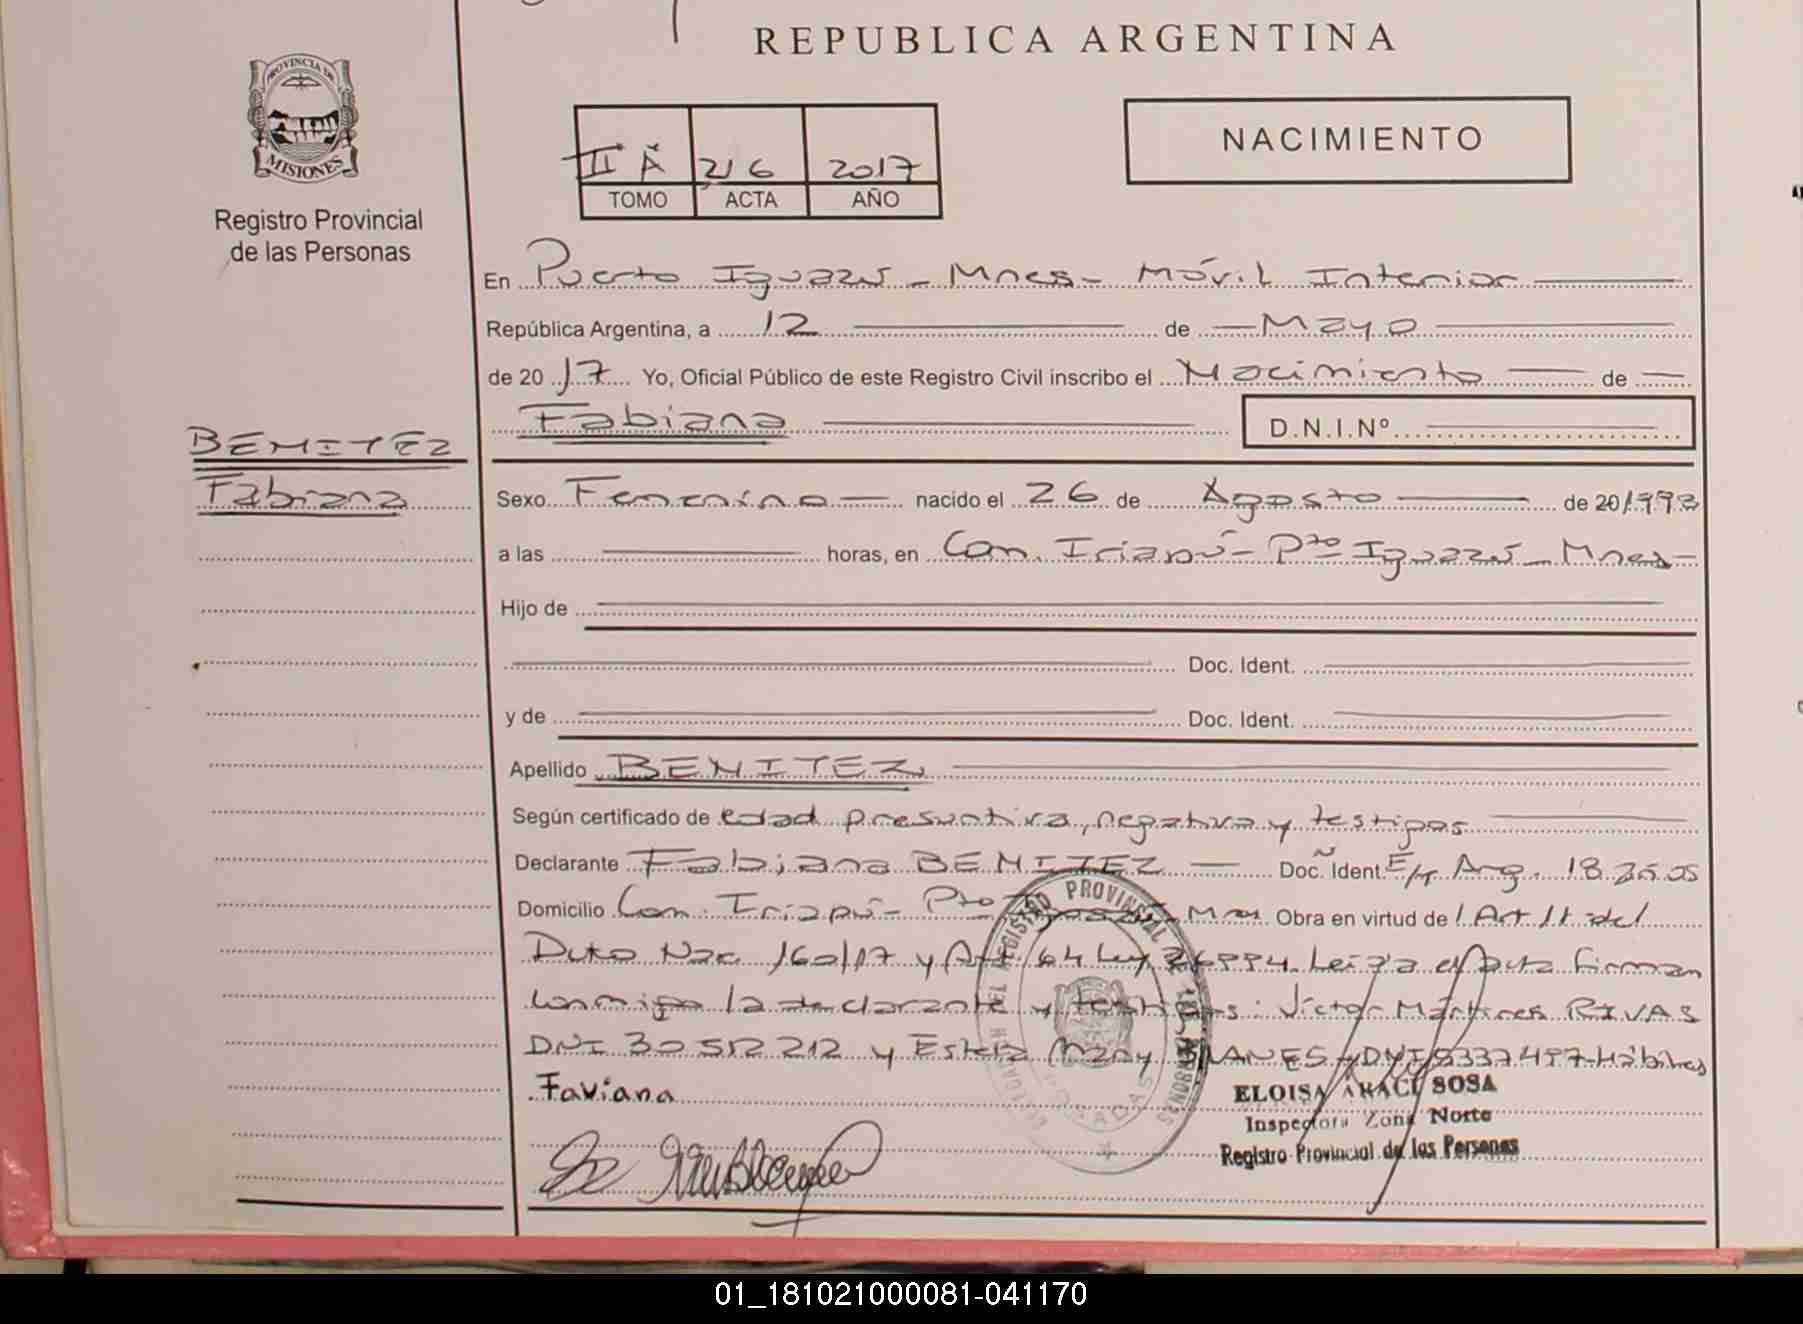 REPUBLICA ARGENTINA
PROVINCIA DE
MISIONES
Registro Provincial
de las Personas
II A 216 2017
TOMO ACTA AÑO
NACIMIENTO
En Puerto Iguazú - Mnes - Móvil Interior
República Argentina, a 12 de Mayo
de 2017 Yo, Oficial Público de este Registro Civil inscribo el Nacimiento de
Fabiana D.N.I.Nº
BENITEZ
Fabiana
Sexo Femenino nacido el 26 de Agosto de 20/1993
a las horas, en Com. Iriapú - Pto Iguazú - Mnes -
Hijo de
Doc. Ident.
y de Doc. Ident.
Apellido BENITEZ
Según certificado de edad presuntiva, negativa y testigos
Declarante Fabiana BENITEZ Doc. Ident. Arg.
Domicilio Com. Iriapú - Pto Iguazú Mnes. Obra en virtud de Art. del
Dcto Nac 160/17 y Art 64 Ley 26994. Leída el Acta firman
conmigo la declarante y testigos: Víctor RIVAS
DNI 30512212 y Hábiles
Faviana
REGISTRO PROVINCIAL DE LAS PERSONAS
ELOISA ARACI SOSA
Inspectora Zona Norte
Registro Provincial de las Personas
01_181021000081-041170